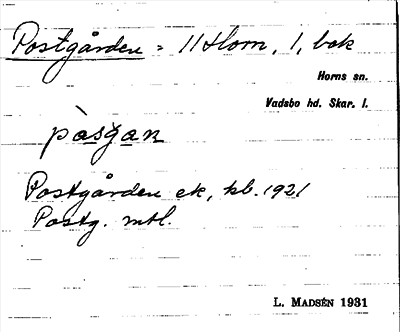 Postgården = 11 Horn, 1, bok
Horns sn.
Vadsbo hd. Skar. l.
pàsğan
Postgården ek, kb. 1921
Postg. mtl.
L. MADSÉN 1931